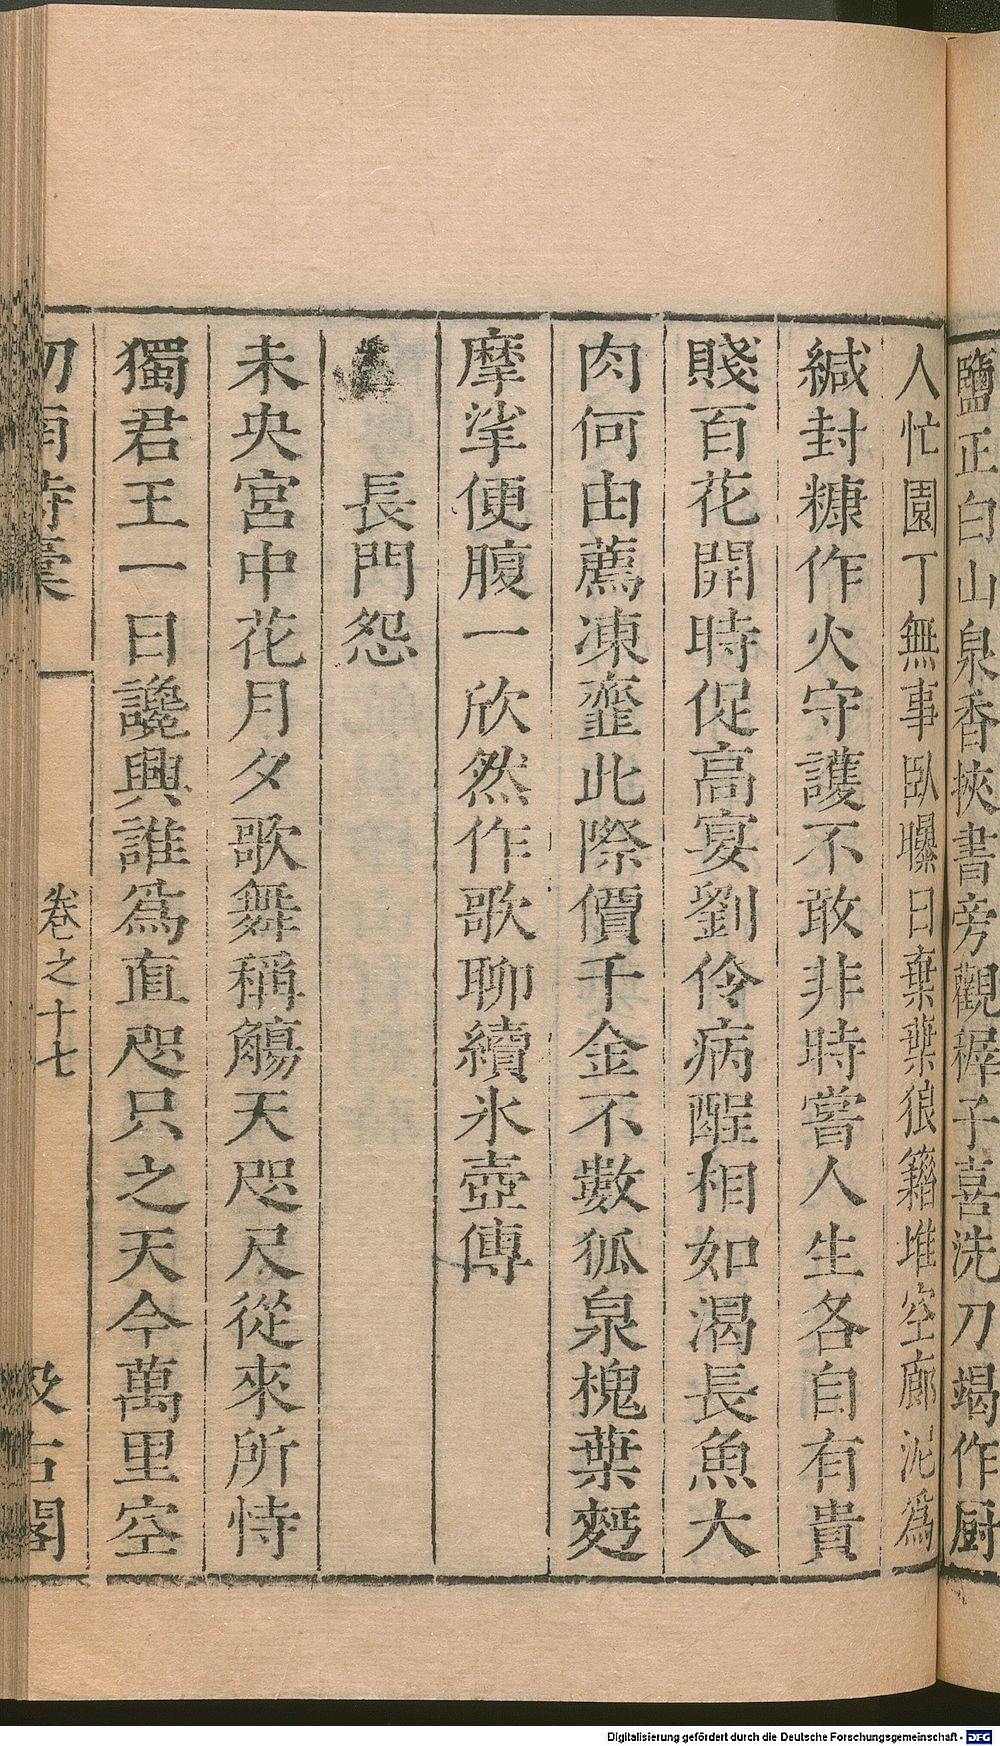 鹽正白山泉香挾書旁觀穉子喜洗刀竭作厨
人忙園丁無事臥曝日棄葉狼籍堆空廊泥爲
緘封糠作火守護不敢非時嘗人生各自有貴
賤百花開時促高宴劉伶病酲相如渴長魚大
肉何由薦凍虀此際價千金不數狐泉槐葉麪
摩挲便腹一欣然作歌聊續氷壺傳
長門怨
未央宮中花月夕歌舞稱觴天咫尺從來所恃
獨君王一日讒興誰爲直咫只之天今萬里空
卷之十七
閣
Digitalisierung gefördert durch die Deutsche Forschungsgemeinschaft - DFG